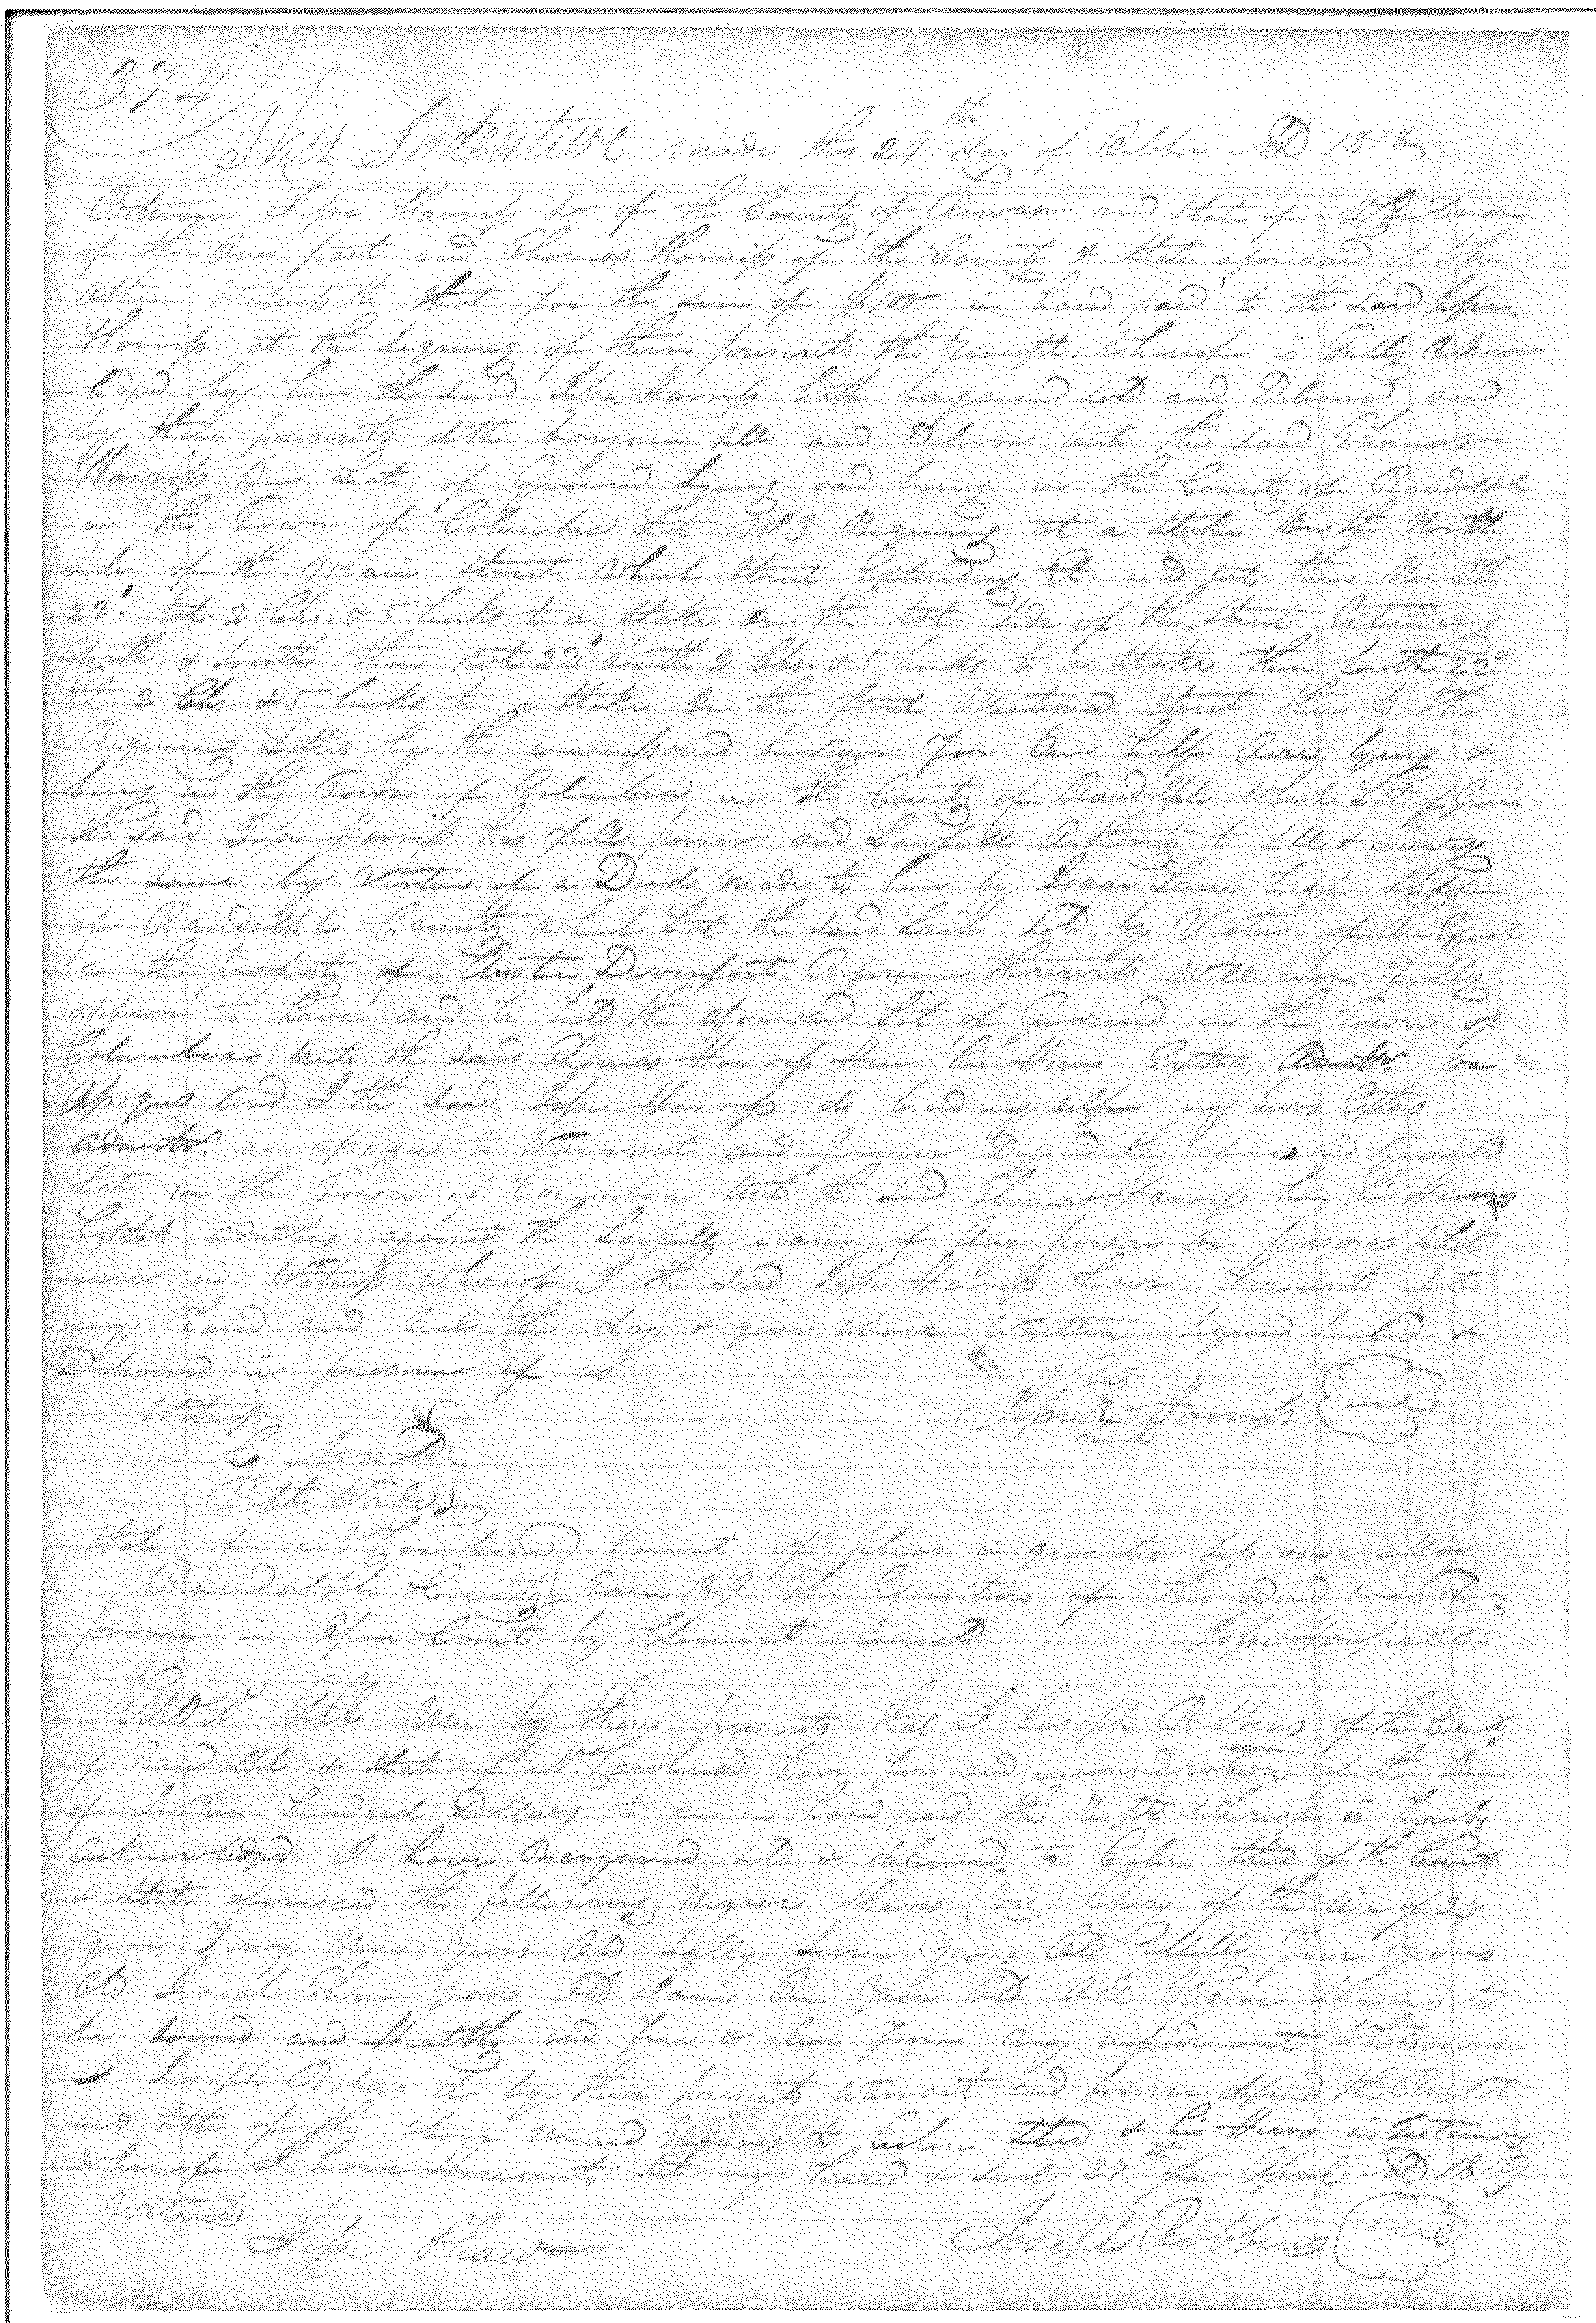 374
This Indenture made this 24.th day of Octobr AD 1818
Between Jesse Harriss Sr of the County of Rowan and State of N Carolina
of the One part and Thomas Harriss of the County & State aforesaid of the
other Witnesseth that for the sum of $100 in hand paid to the said Jesse
Harriss at the signing of these presents the receipt Whereof is Fully Acknow
ledged by him the said Jesse Harriss hath bargained sold and Delivered and
by these presents doth bargain sell and Deliver unto the said Thomas
Harriss One Lot of Ground Lying and being in the County of Randolph
in the Town of Columbia Lot No 3 Begining at a Stake On the North
side of the Main Street which Street Extending Et. and Wt. thence North
22° Wt 2 Chs. & 5 links to a Stake on the Wt. Side of the Street Extending
North & South thence Wt 22° South 2 Chs. & 5 links to a Stake then South 22°
Et. 2 Chs. & 5 links to a Stake On the first Mentioned Street then to the
Begining Lotted by the surveyor For One half Acre lying &
being in the Town of Columbia in the County of Randolph Which Lot of
the said Jesse Harriss has full power and Lawfull Authority to sell & convey
the same by Virtue of a Deed made to him by Isaac Lane high Shff
of Randolph County Which Lot the said Lane sold by Virtue of An
as the property of Austin Divenport Reference thereunto will more fully
appear to have and to hold the aforesaid Lot of Ground in the Town of
Columbia unto the said Thomas Harriss Him his Heirs Extrs. Admtrs. or
Assigns and I the said Jesse Harriss do bind my self my heirs Extrs
admtrs. or assigns to Warrant and forever Defend the aforesaid Granted
Lot in the Town of Columbia Unto the sd Thomas Harriss him his Heirs
Extrs. admtrs against the Lawfull claim of Any person or persons What
ever in Witness Whereof I the said Jesse Harriss have hereunto set
my hand and seal the day & year above Written Signed Sealed &
Delivered in presence of us
his
Witness Jesse Harriss seal
mark
C Arnold
Robt Wade
State of N Carolina Court of pleas & quarter sessions May
Randolph County Term 1819 The Execution of this Deed was duly
proven in Open Court by Clement Arnold Jesse Harper CCC
Know All Men by these presents that I Joseph Robbins of the County
of Randolph & State of N. Carolina have for and in consideration of the sum
of Sixteen hundred Dollars to me in hand paid the Receipt Whereof is hereby
Acknowledged I have Bargained sold & delivered to Colen Steed of the County
& State aforesaid the following Negroe Slaves (Viz) of the Age of 24
years Nine Years Old Seven Years Old Milly Four years
Old Three years Old One Year Old All Negroe Slaves to
be sound and Healthy and Free & clear From any Whatsoever
I Joseph Robins do by these presents Warrant and forever defend the Right
and title of the above named Negroes to Colen Steed & his Heirs in Testimony
Whereof I have Hereunto set my hand & seal 27th of April AD 1819
Witness
Jesse Shaw Joseph Robbins seal